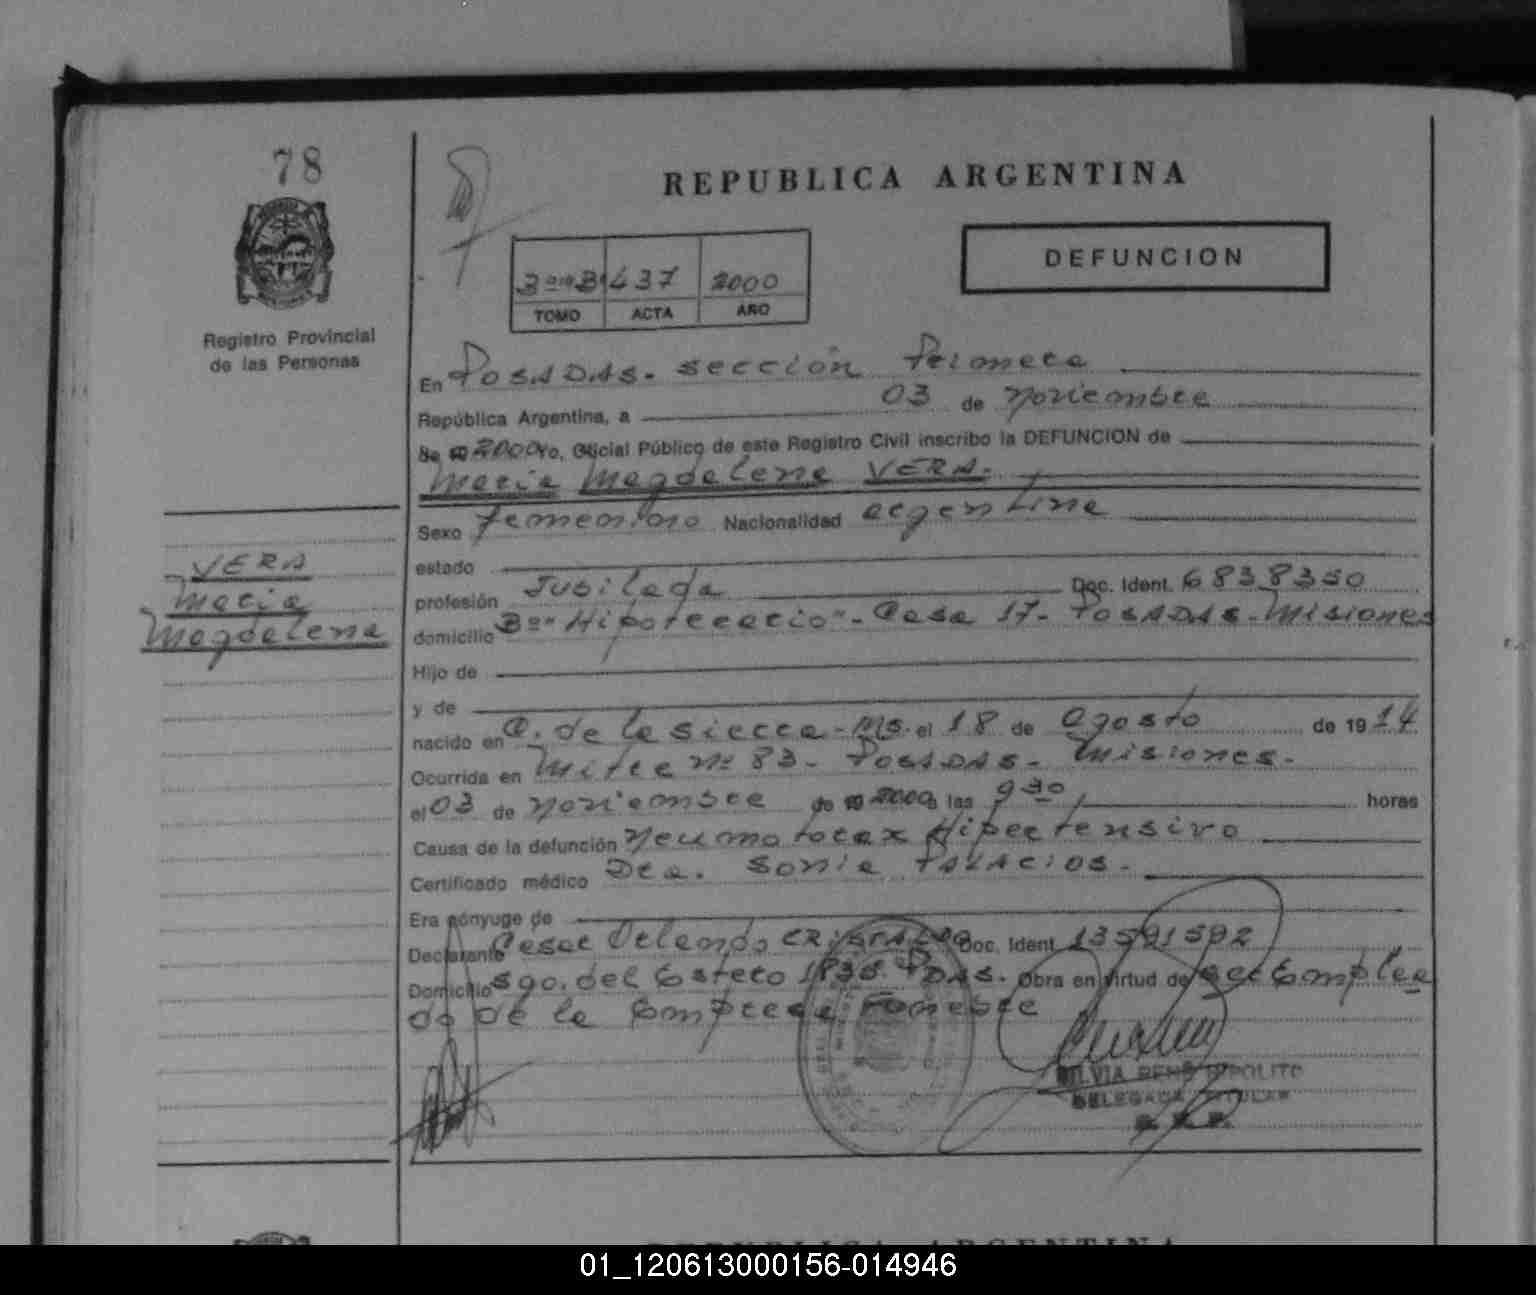 78
REPUBLICA ARGENTINA
DEFUNCION
3º "B" 437 2000
TOMO ACTA AÑO
Registro Provincial
de las Personas
En POSADAS. Sección Primera
República Argentina, a 03 de Noviembre
de 2000 Yo, Oficial Público de este Registro Civil inscribo la DEFUNCION de
Maria Magdalena VERA.
Sexo femenino Nacionalidad argentina
estado
profesión Jubilada Doc. Ident. 6838350
domicilio Bº "Hipotecario" - Casa 17 - POSADAS - Misiones
Hijo de
y de
nacido en C. de la sierra - Ms. el 18 de Agosto de 1914
Ocurrida en Mitre Nº 83 - POSADAS - Misiones.
el 03 de Noviembre de 2000 a las 9 30 horas
Causa de la defunción Neumotorax Hipertensivo
Certificado médico Dra. Sonia PALACIOS.
Era cónyuge de
Declarante Cesar Orlando CRISTALDO Doc. Ident. 13591592
Domicilio Sgo. del Estero 1835. PDAS. Obra en virtud de ser Emplea
do de la Empresa Funebre
VERA
Maria
Magdalena
SILVIA RENE HIPOLITO
DELEGADA TITULAR
REPUBLICA ARGENTINA
01_120613000156-014946